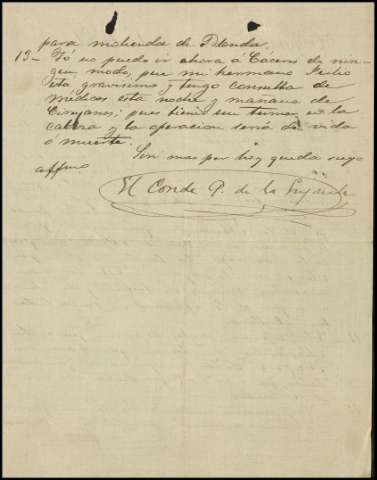 para molienda de
13- Yo no puedo ir ahora á Cáceres de nin-
gun modo, pue mi hermano Julio
está gravisimo y tengo consulta de
médicos esta noche y mañana de
Cirujanos; pues tiene un tumor en la
cabeza y la operacion será de vida
ó muerte.
Son mas por hoy queda suyo
affmo
El Conde P. de la